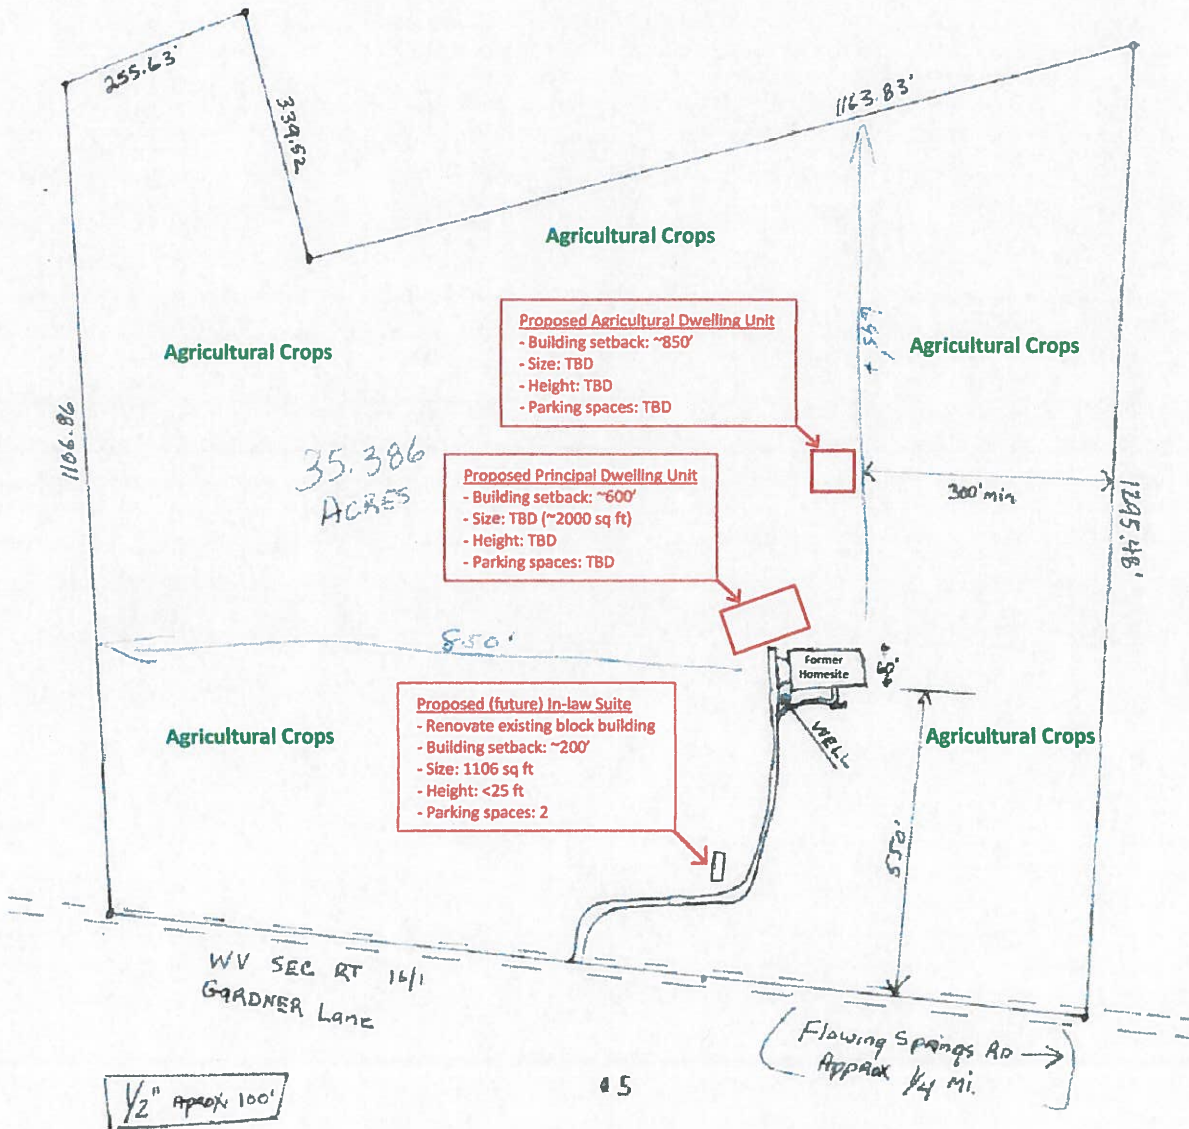 255.63'
339.52
1163.83'
Agricultural Crops
Agricultural Crops
Agricultural Crops
Proposed Agricultural Dwelling Unit
- Building setback: ~850'
- Size: TBD
- Height: TBD
- Parking spaces: TBD
1106.86
35.386
ACRES
Proposed Principal Dwelling Unit
- Building setback: ~600'
- Size: TBD (~2000 sq ft)
- Height: TBD
- Parking spaces: TBD
300' min
1295.48'
850'
Former
Homesite
WELL
Proposed (future) In-law Suite
- Renovate existing block building
- Building setback: ~200'
- Size: 1106 sq ft
- Height: <25 ft
- Parking spaces: 2
Agricultural Crops
Agricultural Crops
550'
WV SEC RT 16/1
GARDNER Lane
Flowing Springs RD
Approx 1/4 Mi.
1/2" Aprox 100'
5